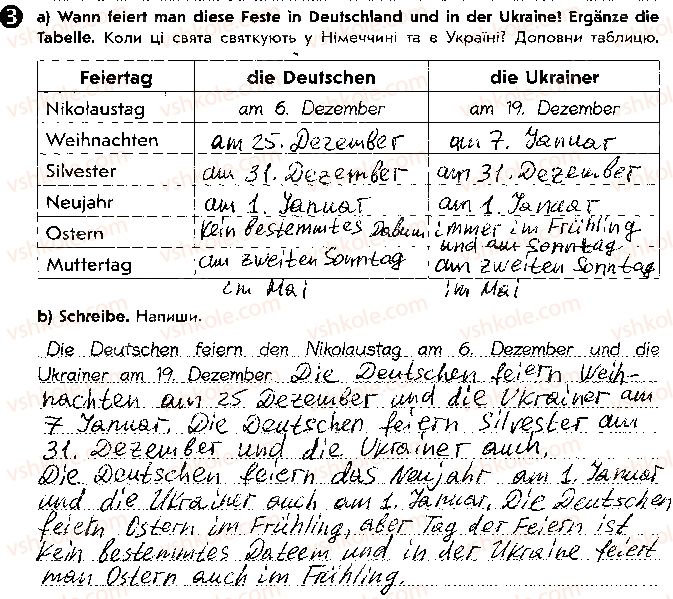 3 a) Wann feiert man diese Feste in Deutschland und in der Ukraine! Ergänze die
Tabelle. Коли ці свята святкують у Німеччині та в Україні? Доповни таблицю.
Feiertag die Deutschen die Ukrainer
Nikolaustag am 6. Dezember am 19. Dezember
Weihnachten am 25. Dezember am 7. Januar
Silvester am 31. Dezember am 31. Dezember
Neujahr am 1. Januar am 1. Januar
Ostern kein bestemmtes Datum immer im Frühling
und am Sonntag
Muttertag am zweiten Sonntag am zweiten Sonntag
im Mai im Mai
b) Schreibe. Напиши.
Die Deutschen feiern den Nikolaustag am 6. Dezember und die
Ukrainer am 19. Dezember. Die Deutschen feiern Weih-
nachten am 25 Dezember und die Ukrainer am
7 Januar. Die Deutschen feiern Silvester am
31. Dezember und die Ukrainer auch.
Die Deutschen feiern das Neujahr am 1. Januar
und die Ukrainer auch am 1. Januar. Die Deutschen
feiern Ostern im Frühling, aber Tag der Feiern ist
kein bestemmtes Dateem und in der Ukraine feiert
man Ostern auch im Frühling.